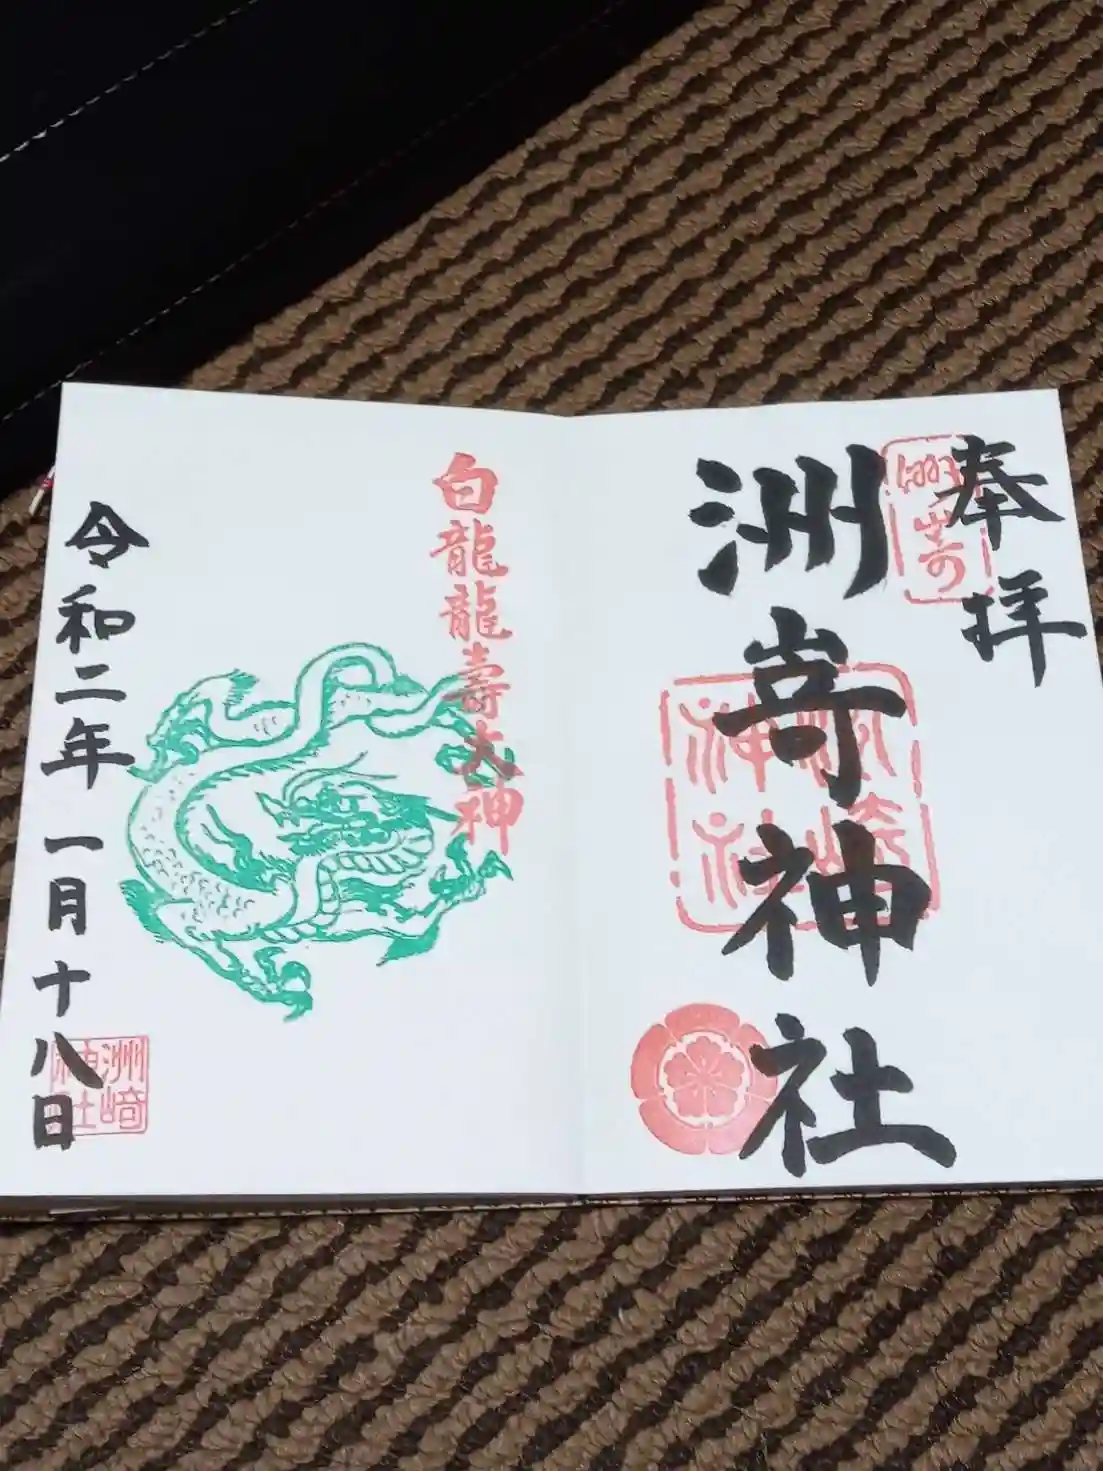 奉拝
洲嵜
洲嵜神社
洲崎神社
白龍龍壽大神
令和二年一月十八日
洲崎神社